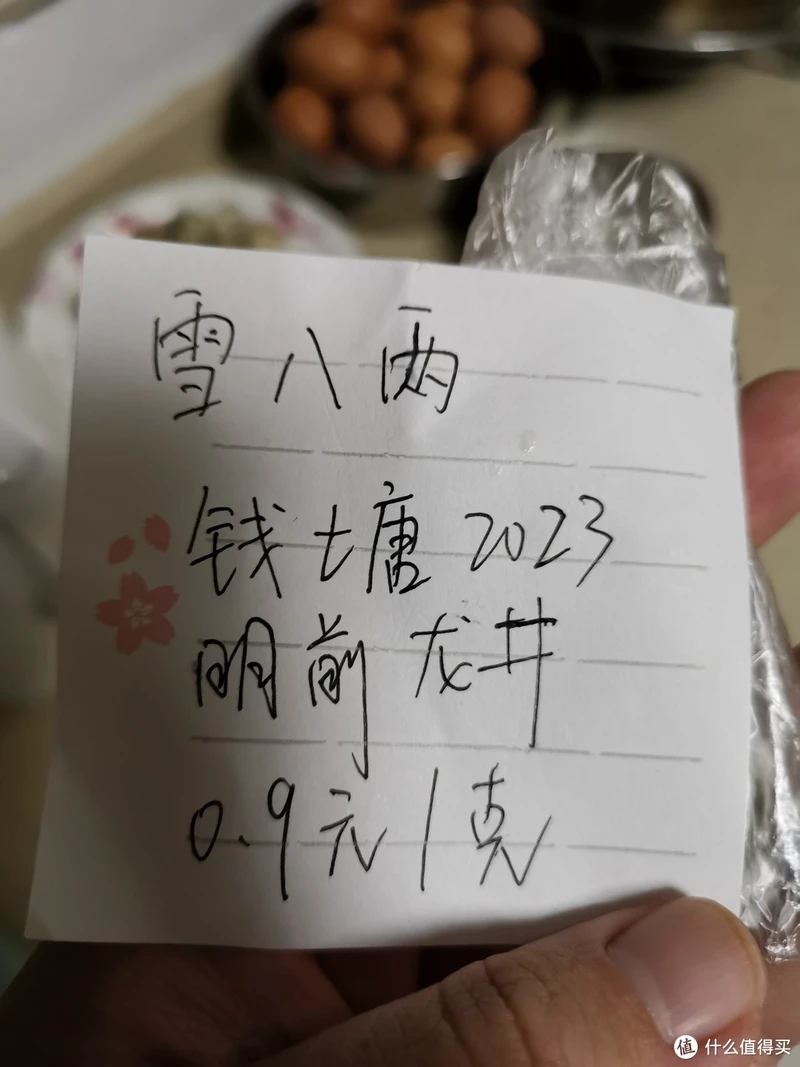 雪八两
钱塘2023
明前龙井
0.9元/克
值 什么值得买